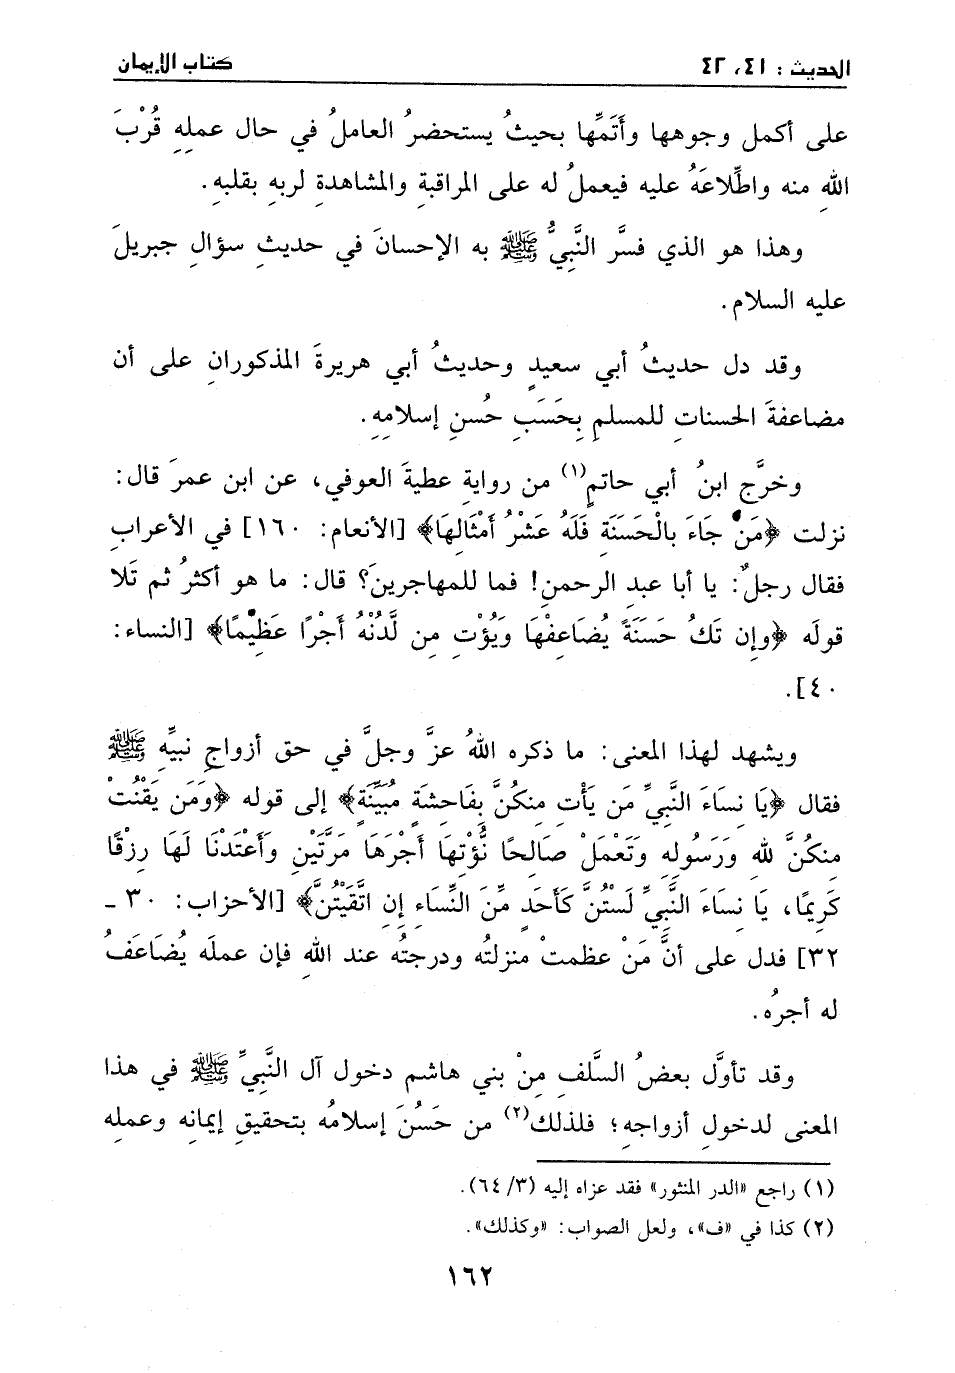 الحديث : ٤١، ٤٢
كتاب الإيمان
على أكمل وجوهها وأَتَمِّها بحيثُ يستحضرُ العاملُ في حال عملِهِ قُرْبَ
اللهِ منه واطِّلاعَهُ عليه فيعملُ له على المراقبةِ والمشاهدةِ لربهِ بقلبهِ.
وهذا هو الذي فسَّر النَّبيُّ ﷺ به الإحسانَ في حديثِ سؤالِ جبريلَ
عليه السلام.
وقد دل حديثُ أبي سعيدٍ وحديثُ أبي هريرةَ المذكورانِ على أن
مضاعفةَ الحسناتِ للمسلمِ بِحَسَبِ حُسنِ إسلامِهِ.
وخرَّج ابنُ أبي حاتمٍ(١) من روايةِ عطيةَ العوفي، عن ابن عمرَ قال:
نزلت ﴿مَنْ جَاءَ بالْحَسَنَةِ فَلَهُ عَشْرُ أَمْثَالِهَا﴾ [الأنعام: ١٦٠] في الأعرابِ
فقال رجلٌ: يا أبا عبدِ الرحمنِ! فما للمهاجرينَ؟ قال: ما هو أكثرُ ثم تَلا
قولَه ﴿وإِن تَكُ حَسَنَةً يُضَاعِفْهَا وَيُؤْتِ مِن لَّدُنْهُ أَجْرًا عَظِيمًا﴾ [النساء:
٤٠].
ويشهد لهذا المعنى: ما ذكره اللهُ عزَّ وجلَّ في حق أزواجِ نبيِّه ﷺ
فقال ﴿يَا نِسَاءَ النَّبيِّ مَن يَأْتِ مِنكُنَّ بِفَاحِشَةٍ مُبَيِّنَةٍ﴾ إلى قوله ﴿وَمَن يَقْنُتْ
مِنكُنَّ للهِ وَرَسُولِهِ وَتَعْمَلْ صَالِحًا نُّؤْتِهَا أَجْرَهَا مَرَّتَيْنِ وَأَعْتَدْنَا لَهَا رِزْقًا
كَرِيمًا، يَا نِسَاءَ النَّبيِّ لَسْتُنَّ كَأَحَدٍ مِّنَ النِّسَاءِ إِنِ اتَّقَيْتُنَّ﴾ [الأحزاب: ٣٠ ـ
٣٢] فدل على أنَّ مَنْ عظمتْ منزلتُه ودرجتُه عند اللهِ فإن عملَه يُضَاعَفُ
له أجرُه.
وقد تأوَّل بعضُ السَّلفِ مِنْ بني هاشم دخول آل النَّبيِّ ﷺ في هذا
المعنى لدخولِ أزواجهِ؛ فلذلك(٢) من حَسُنَ إسلامُه بتحقيقِ إيمانِه وعملِه
(١) راجع «الدر المنثور» فقد عزاه إليه (٣/ ٦٤).
(٢) كذا في «ف»، ولعل الصواب: «وكذلك».
١٦٢